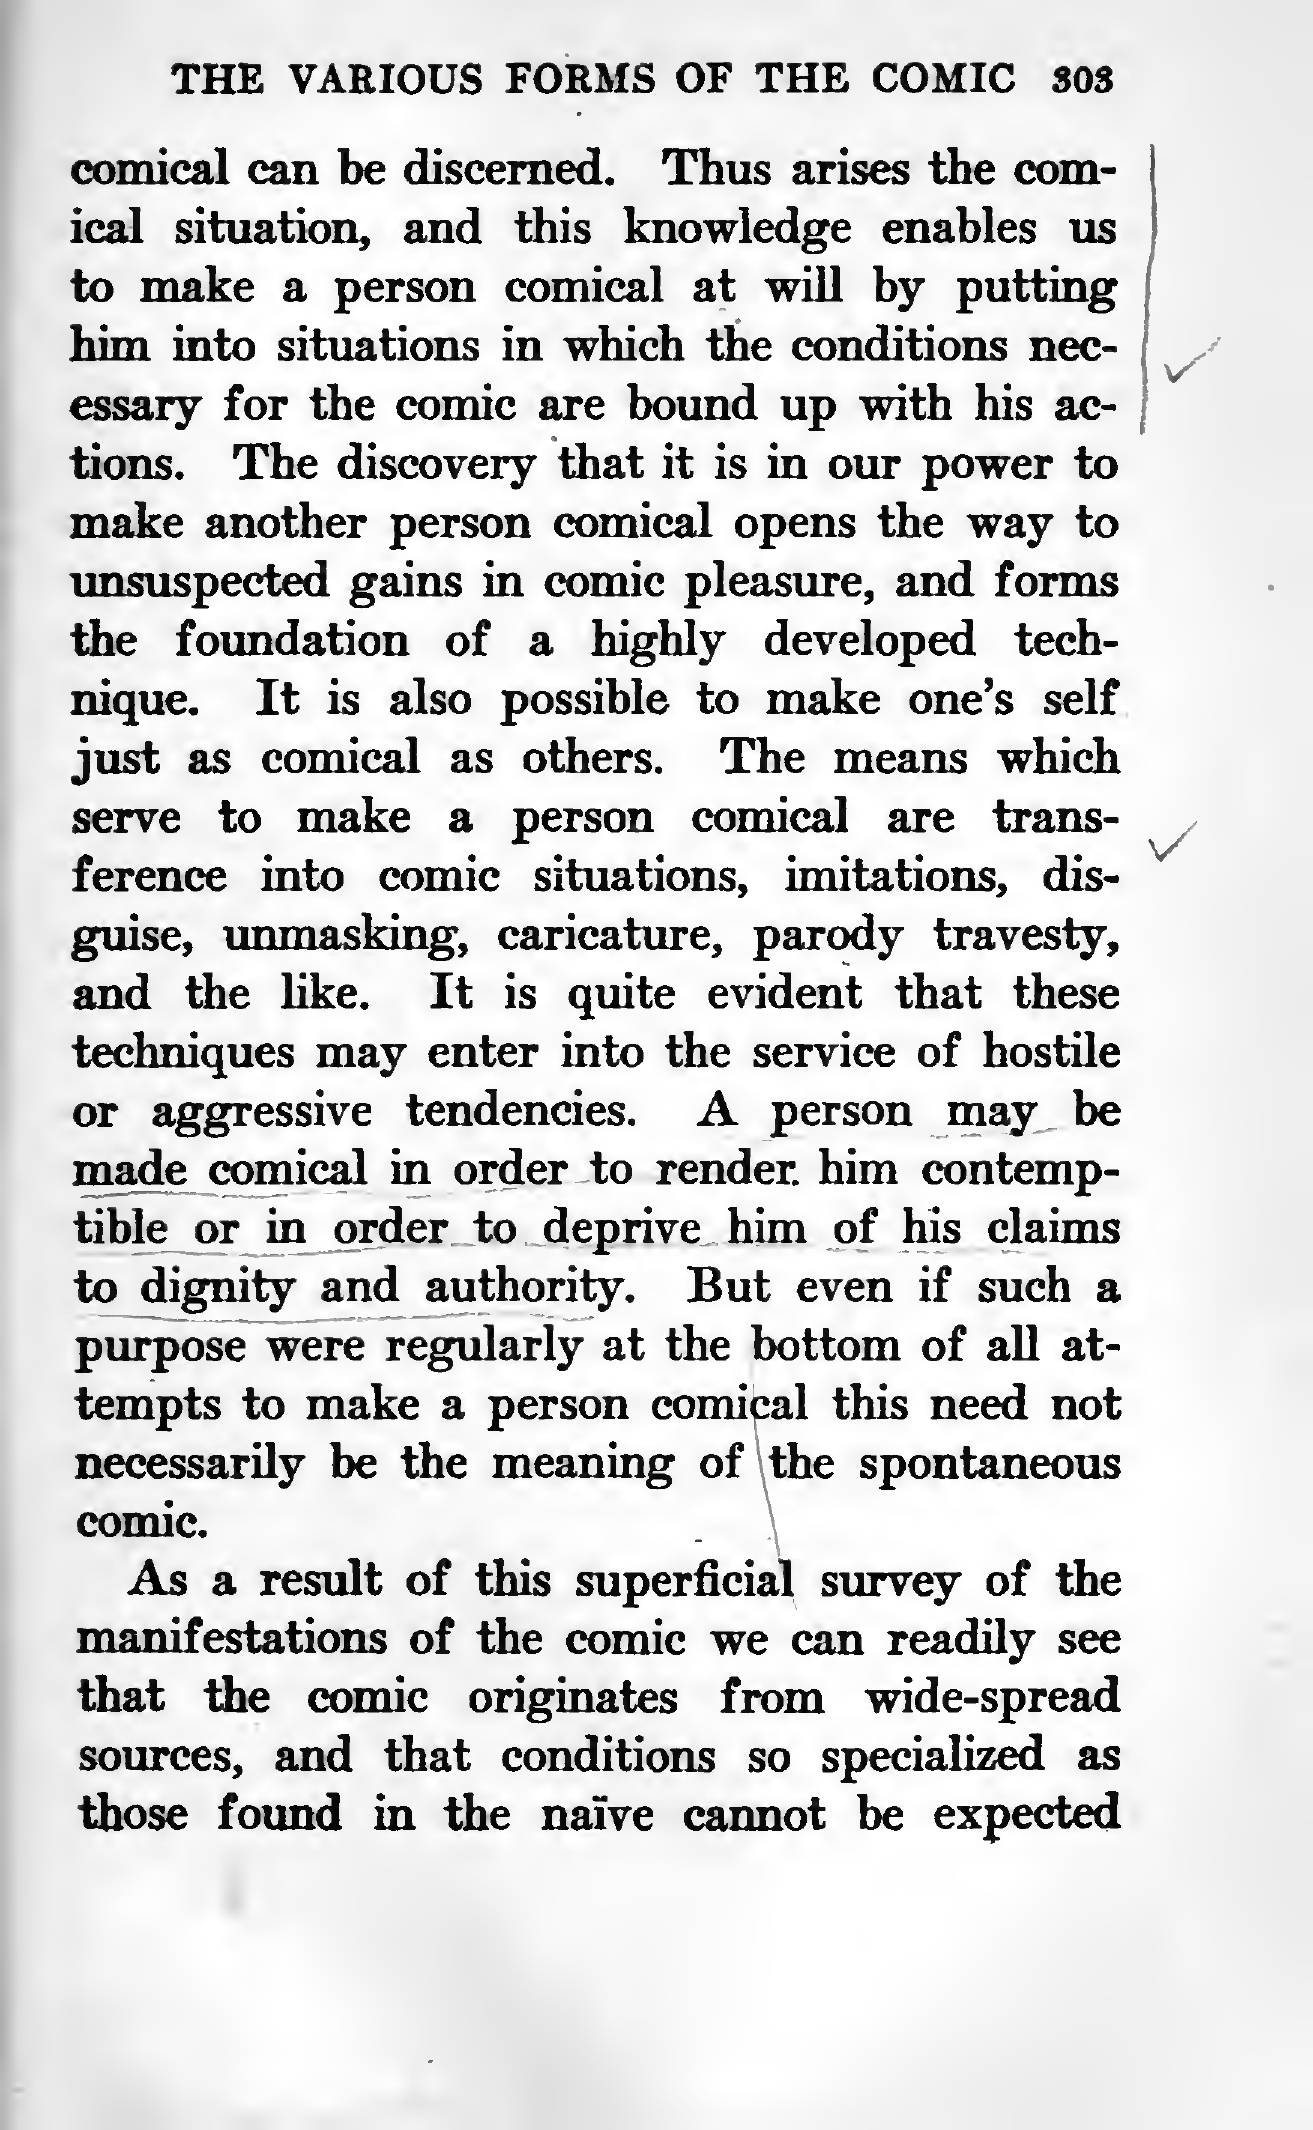 THE VARIOUS FORMS OF THE COMIC 303
comical can be discerned. Thus arises the com-
ical situation, and this knowledge enables us
to make a person comical at will by putting
him into situations in which the conditions nec-
essary for the comic are bound up with his ac-
tions. The discovery that it is in our power to
make another person comical opens the way to
unsuspected gains in comic pleasure, and forms
the foundation of a highly developed tech-
nique. It is also possible to make one's self
just as comical as others. The means which
serve to make a person comical are trans-
ference into comic situations, imitations, dis-
guise, unmasking, caricature, parody travesty,
and the like. It is quite evident that these
techniques may enter into the service of hostile
or aggressive tendencies. A person may be
made comical in order to render him contemp-
tible or in order to deprive him of his claims
to dignity and authority. But even if such a
purpose were regularly at the bottom of all at-
tempts to make a person comical this need not
necessarily be the meaning of the spontaneous
comic.
As a result of this superficial survey of the
manifestations of the comic we can readily see
that the comic originates from wide-spread
sources, and that conditions so specialized as
those found in the naïve cannot be expected